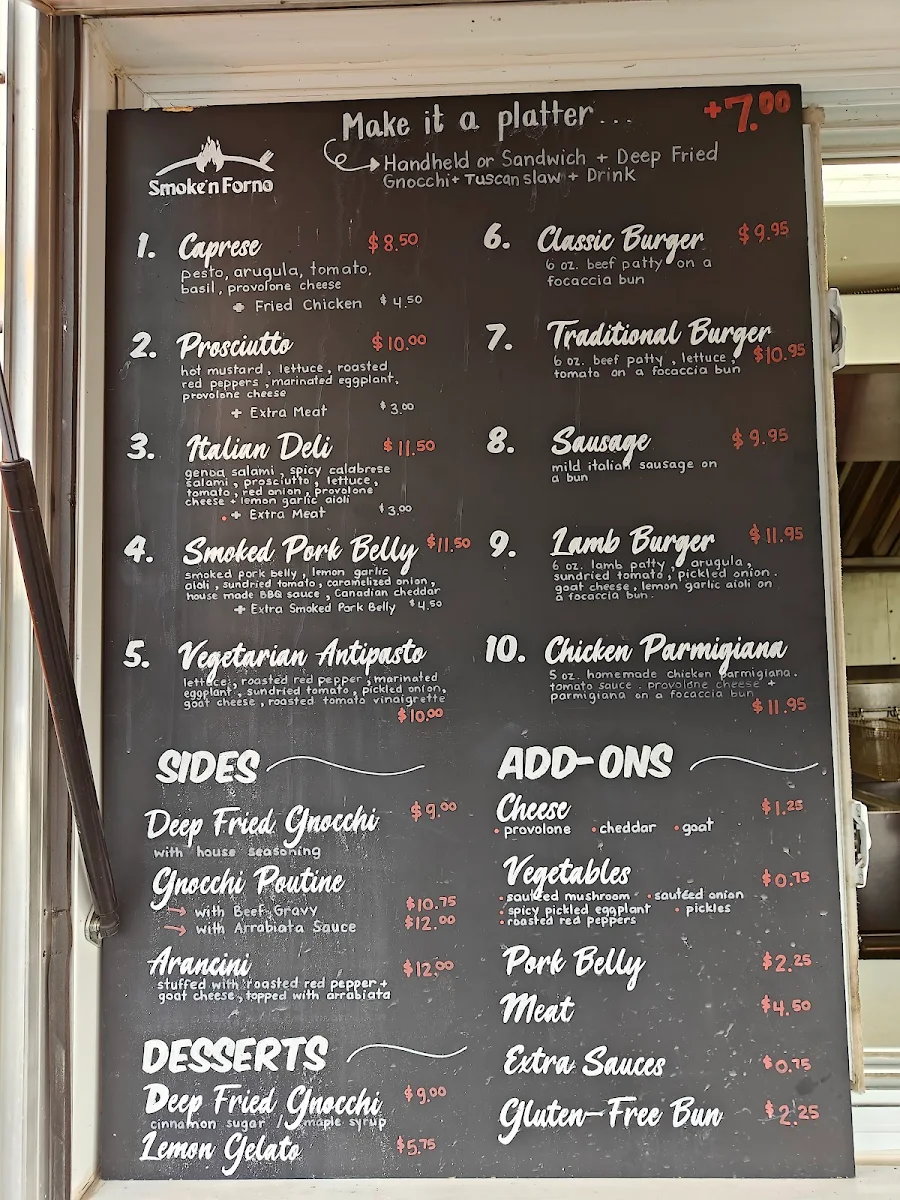 Make it a platter... +7.00
Handheld or Sandwich + Deep Fried
Gnocchi + Tuscan slaw + Drink
Smoke'n Forno
1. Caprese $8.50
pesto, arugula, tomato,
basil, provolone cheese
+ Fried Chicken $4.50
2. Prosciutto $10.00
hot mustard, lettuce, roasted
red peppers, marinated eggplant.
provolone cheese
+ Extra Meat $3.00
3. Italian Deli $11.50
genoa salami, spicy calabrese
salami, prosciutto, lettuce,
tomato, red onion, provolone
cheese + lemon garlic aioli
+ Extra Meat $3.00
4. Smoked Pork Belly $11.50
smoked pork belly, lemon garlic
aioli, sundried tomato, caramelized onion,
house made BBQ sauce, Canadian cheddar
+ Extra Smoked Pork Belly $4.50
5. Vegetarian Antipasto
lettuce, roasted red pepper, marinated
eggplant, sundried tomato, pickled onion,
goat cheese, roasted tomato vinaigrette
$10.00
6. Classic Burger $9.95
6 oz. beef patty on a
focaccia bun
7. Traditional Burger
6 oz. beef patty, lettuce, $10.95
tomato on a focaccia bun
8. Sausage $9.95
mild italian sausage on
a bun
9. Lamb Burger $11.95
6 oz. lamb patty, arugula,
sundried tomato, pickled onion.
goat cheese, lemon garlic aioli on
a focaccia bun.
10. Chicken Parmigiana
5 oz. homemade chicken parmigiana.
tomato sauce. provolone cheese +
parmigiana on a focaccia bun
$11.95
SIDES
Deep Fried Gnocchi $9.00
with house seasoning
Gnocchi Poutine
with Beef Gravy $10.75
with Arrabiata Sauce $12.00
Arancini $12.00
stuffed with roasted red pepper +
goat cheese, topped with arrabiata
DESSERTS
Deep Fried Gnocchi $9.00
cinnamon sugar / maple syrup
Lemon Gelato $5.75
ADD-ONS
Cheese $1.25
• provolone • cheddar • goat
Vegetables $0.75
• sautéed mushroom • sautéed onion
• spicy pickled eggplant • pickles
• roasted red peppers
Pork Belly $2.25
Meat $4.50
Extra Sauces $0.75
Gluten-Free Bun $2.25